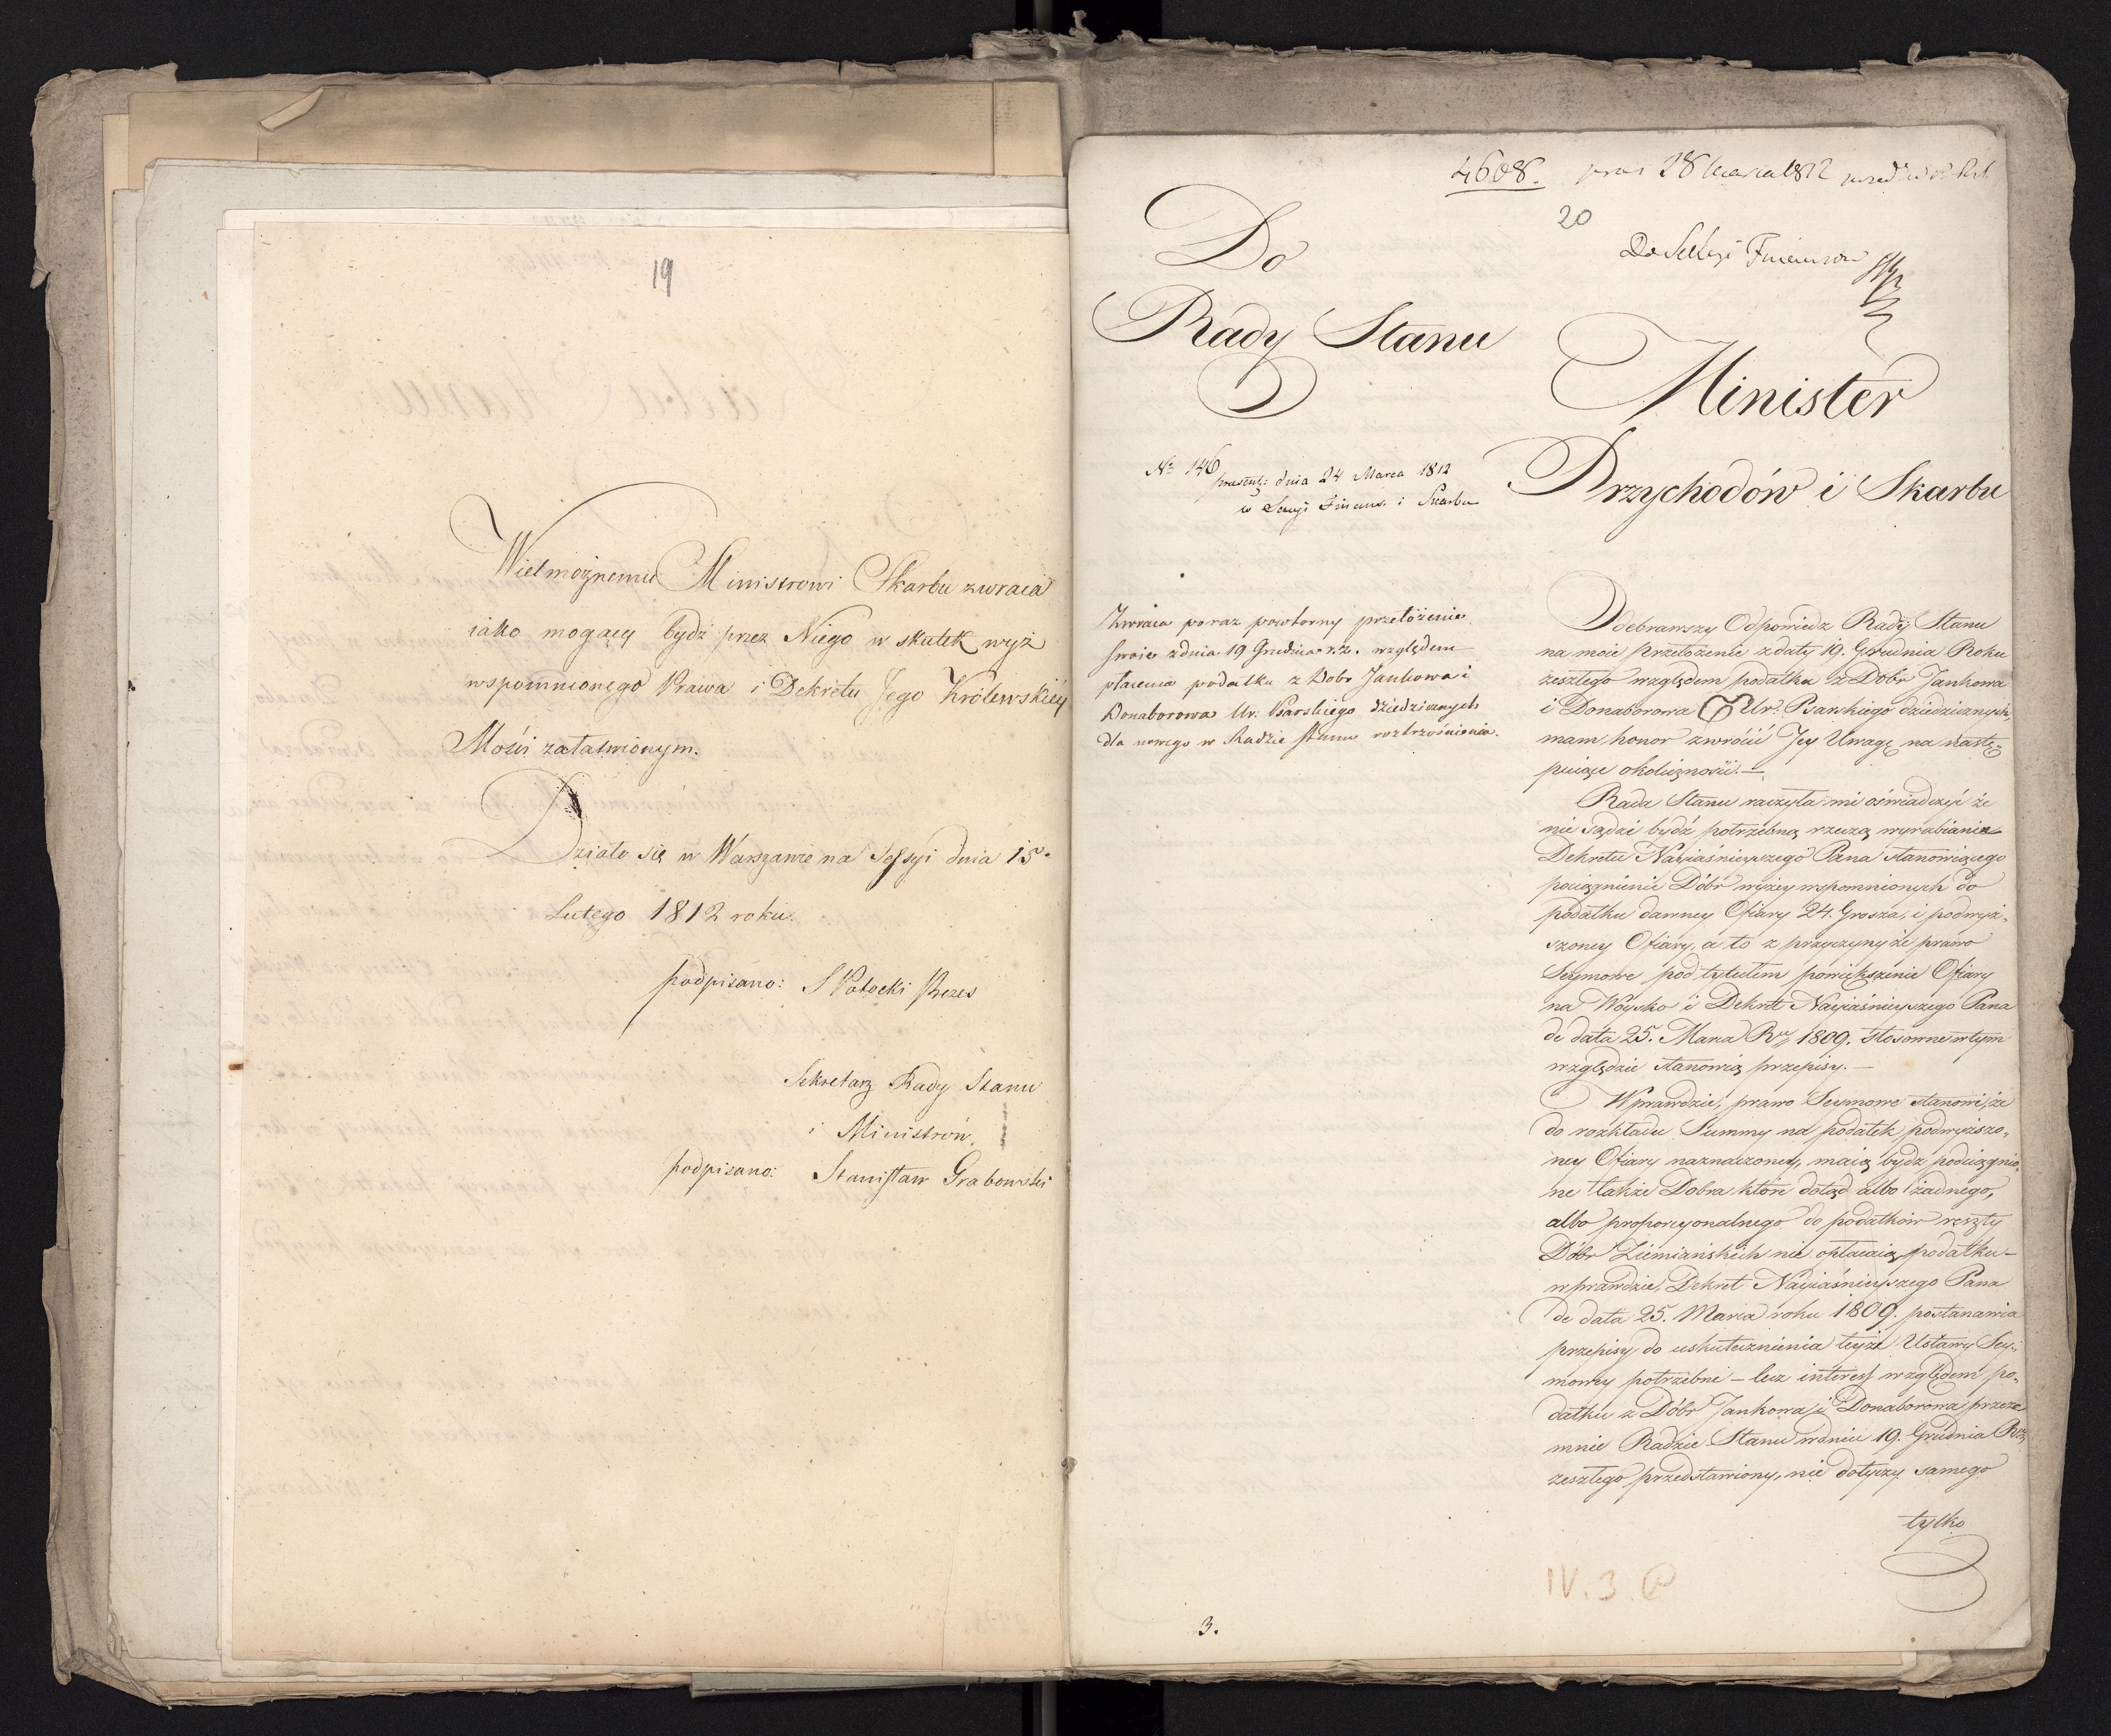 19
Wielmożnemu Ministrowi Skarbu zwraca
iako mogący bydź przez Niego w skutek wyż
wspomnionego Prawa i Dekretu Jego Królewskiéy
Mości załatwionym.
Działo się w Warszawie na Sessyi dnia 15.
Lutego 1812 roku.
podpisano: S Potocki Prezes
Sekretarz Rady Stanu
i Ministrów.
podpisano: Stanisław Grabowski
4608. 28 1812
20
Do Sekcyi Finansow
Do
Rady Stanu
Minister
Przychodów i Skarbu
No 146
praesent: dnia 24 Marca 1812
w Sekcyi Finans. i Skarbu
Zwraca poraz powtorny przełożenie
swoie z dnia 19 Grudnia r. z. względem
płacenia podatku z Dobr Jankowa i
Donaborowa Ur. Psarskiego dziedzicznych
dla nowego w Radzie Stanu roztrząśnienia.
Odebrawszy Odpowiedz Rady Stanu
na moie Przełożenie z daty 19. Grudnia Roku
zeszłego względem podatku z Dóbr Jankowa
i Donaborowa Ur. Psarskiego dziedzicznych,
mam honor zwrócić Jey Uwagę na nastę-
puiące okoliczności. —
Rada Stanu raczyła mi oświadczyć że
nie sądzi bydź potrzebną rzeczą wyrabianie
Dekretu Nayiaśnieyszego Pana stanowiącego
pociągnienie Dóbr wyżey wspomnionych do
podatku dawney Ofiary 24. Grosza, i podwyż-
szoney Ofiary, a to z przyczyny że prawo
Seymowe pod tytułem powiększenie Ofiary
na Woysko i Dekret Nayiaśnieyszego Pana
de data 25. Marca Ru 1809. stosowne w tym
względzie stanowią przepisy. —
Wprawdzie, prawo Seymowe stanowi, że
do rozkładu Summy na podatek podwyższo-
ney Ofiary naznaczoney, maią bydź podciągnio-
ne także Dobra które dotąd albo żadnego,
albo proporcyonalnego do podatków reszty
Dóbr Ziemiańskich nie opłacaią podatku —
wprawdzie, Dekret Nayiaśnieyszego Pana
de data 25. Marca roku 1809. postanawia
przepisy do uskutecznienia teyże Ustawy Sey-
mowey potrzebne — lecz interess względem po-
datku z Dóbr Jankowa i Donaborowa przeze
mnie Radzie Stanu w dniu 19. Grudnia
zeszłego przedstawiony, nie dotyczy samego
tylko
IV. 3.
3.